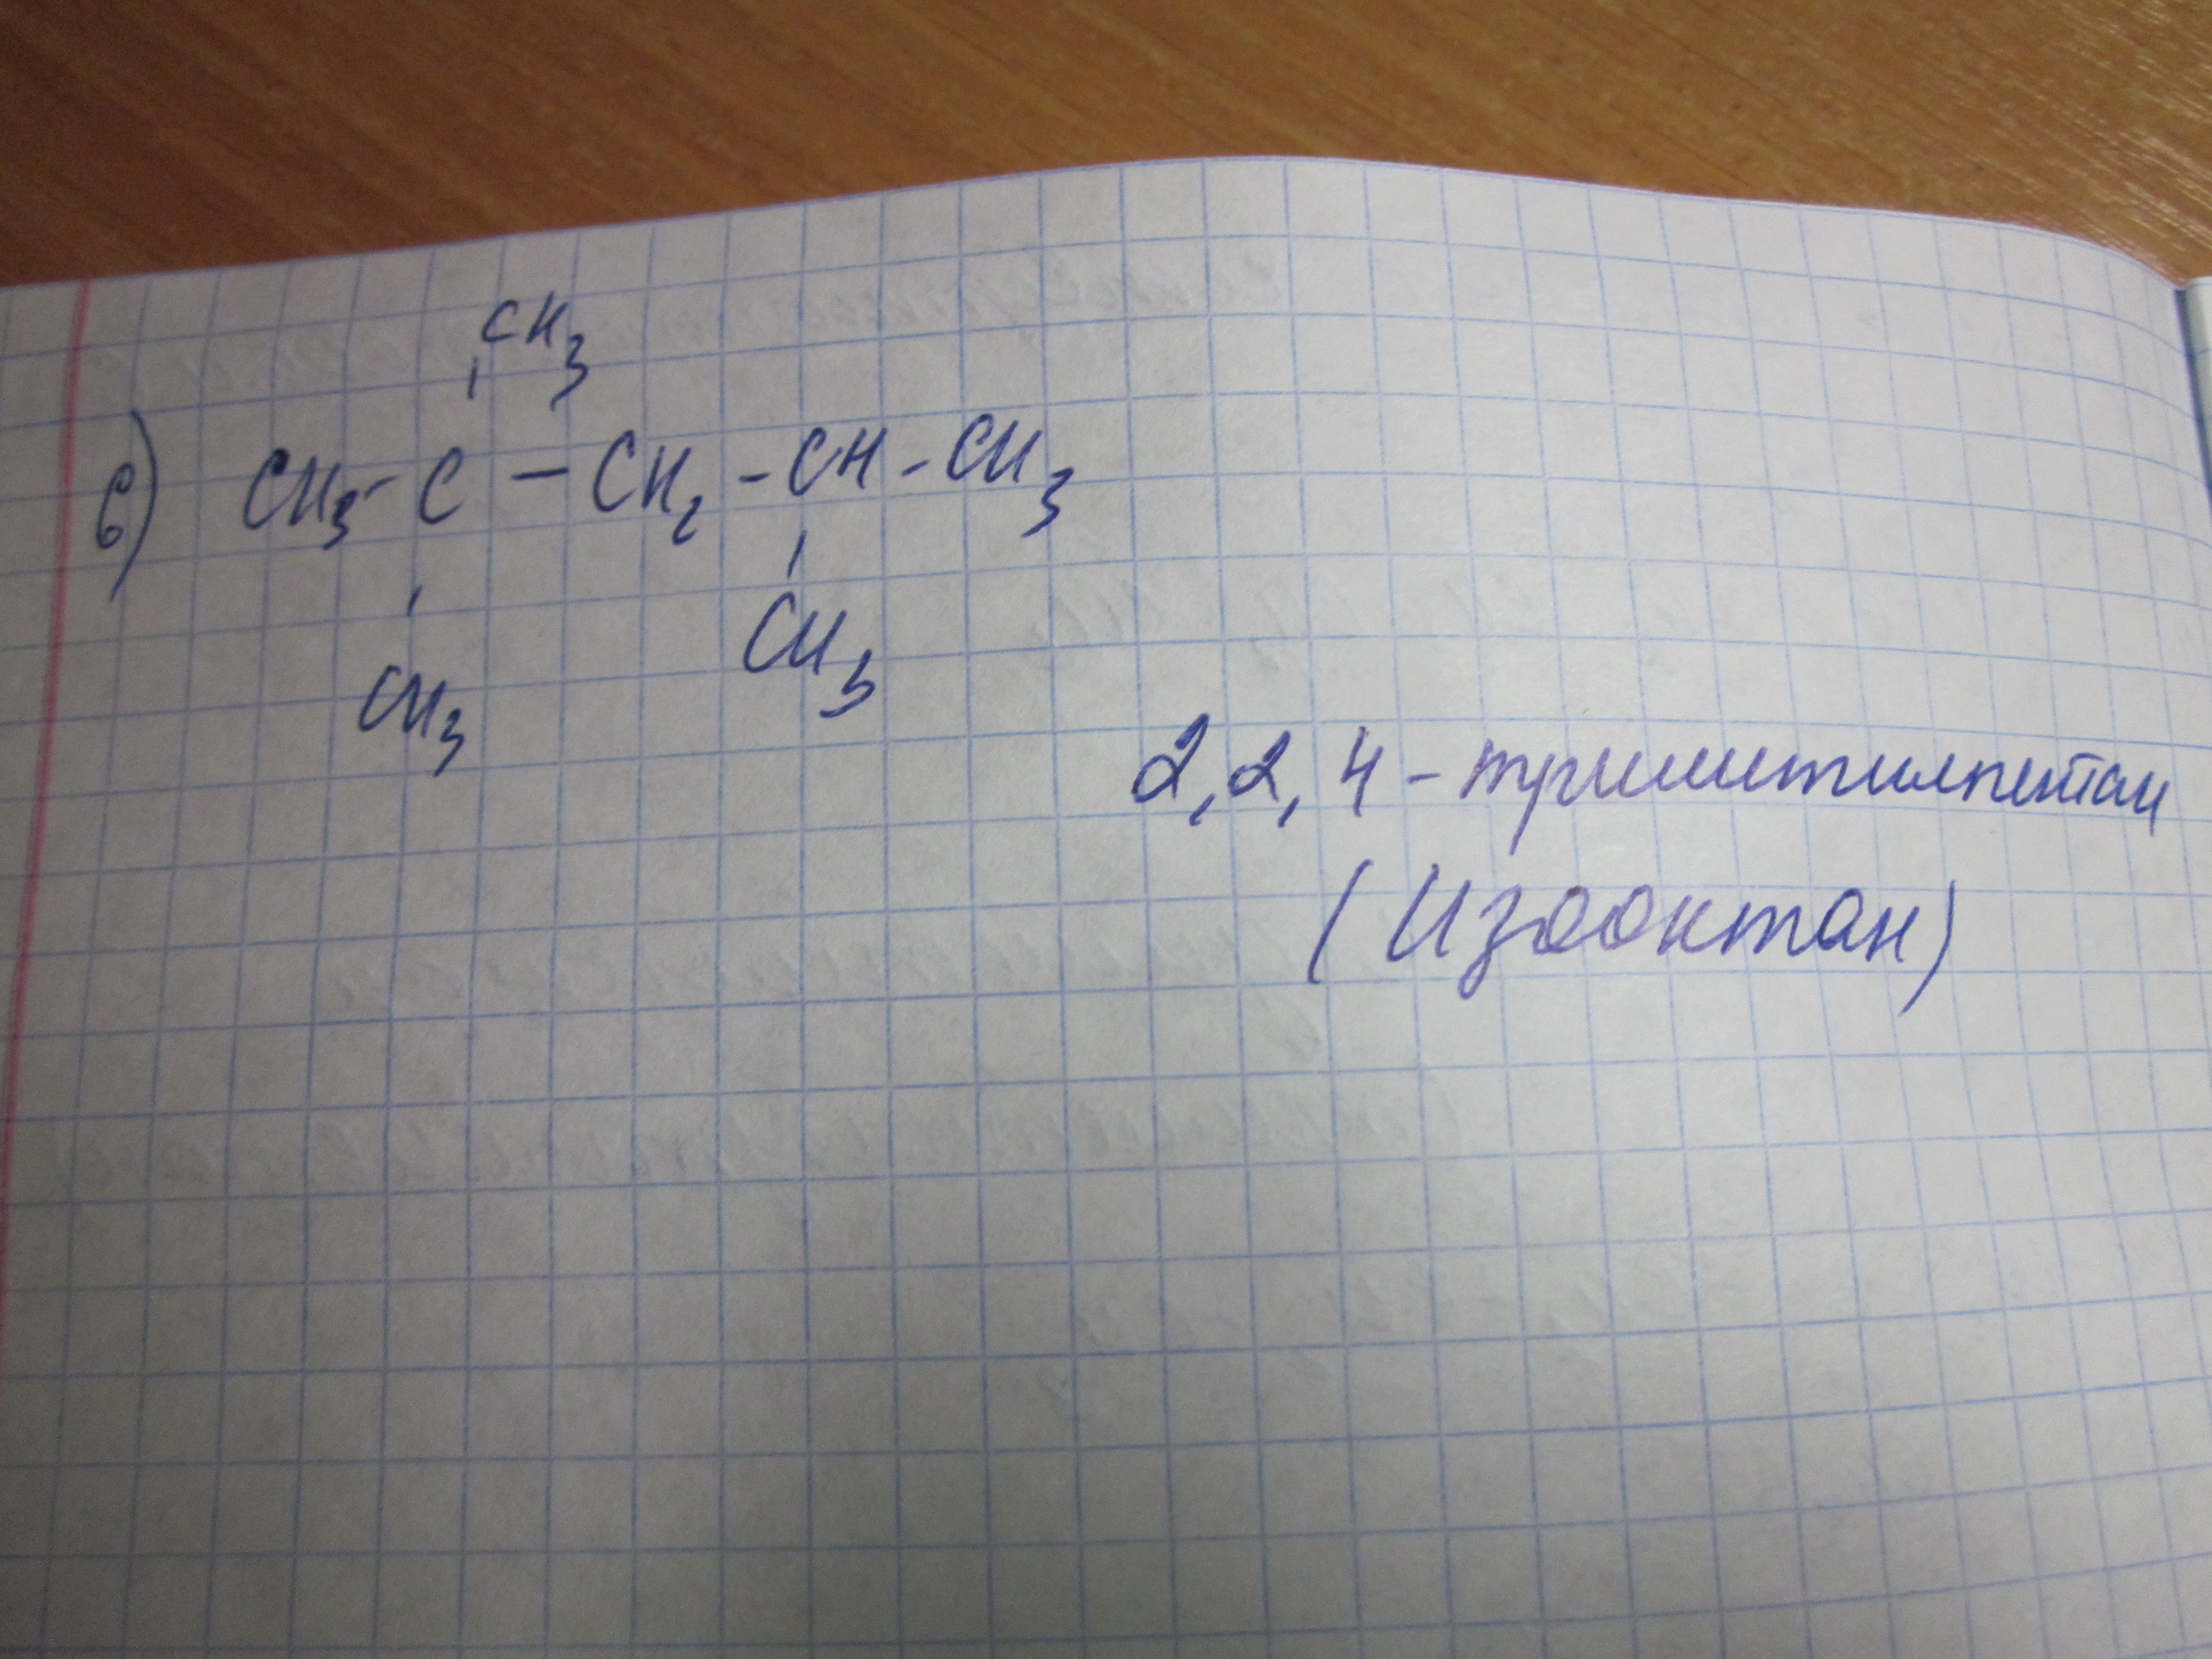 CH3
б) CH3 - C - CH2 - CH - CH3
CH3 CH3
2,2,4 - триметилпентан
(Изооктан)